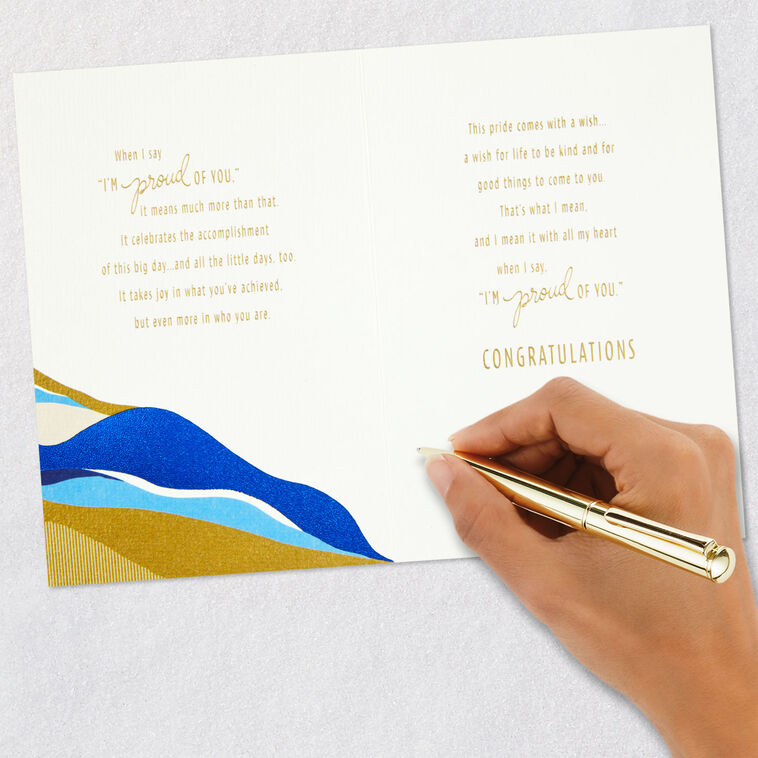 When I say
"I'M proud OF YOU."
it means much more than that.
It celebrates the accomplishment
of this big day...and all the little days, too.
It takes joy in what you've achieved,
but even more in who you are.
This pride comes with a wish...
a wish for life to be kind and for
good things to come to you.
That's what I mean,
and I mean it with all my heart
when I say,
"I'M proud OF YOU."
CONGRATULATIONS